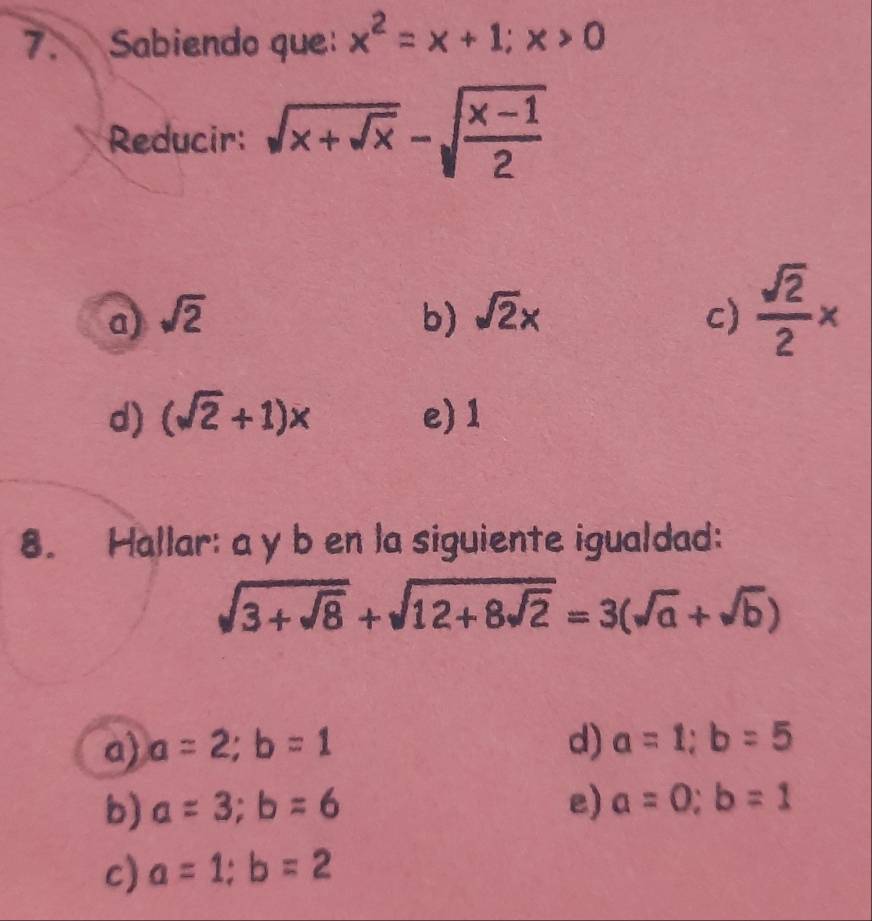 7. Sabiendo que: x² = x + 1; x > 0
Reducir: √(x + √x) − √((x − 1)/2)
a) √2 b) √2x c) (√2/2)x
d) (√2 + 1)x e) 1
8. Hallar: a y b en la siguiente igualdad:
√(3 + √8) + √(12 + 8√2) = 3(√a + √b)
a) a = 2; b = 1 d) a = 1; b = 5
b) a = 3; b = 6 e) a = 0; b = 1
c) a = 1; b = 2